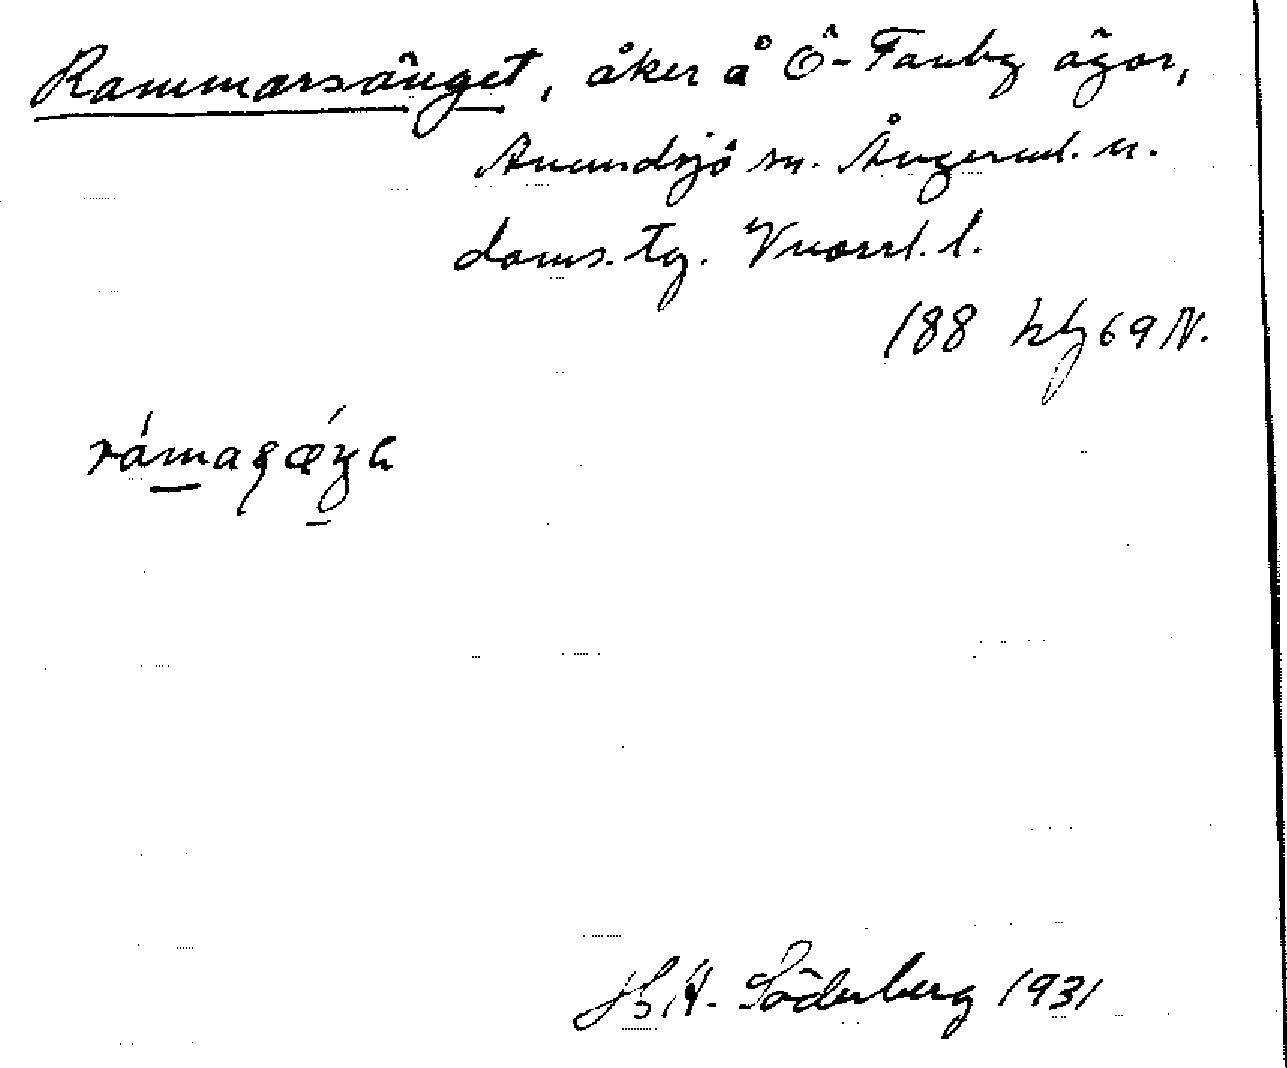 Rammarsänget, åker å Ö-Tanbg ägor,
Anundsjö sn. Ångerml. n.
doms. tg. Vnorrl. l.
188 kbg 69 N.
H. A. Söderberg 1931